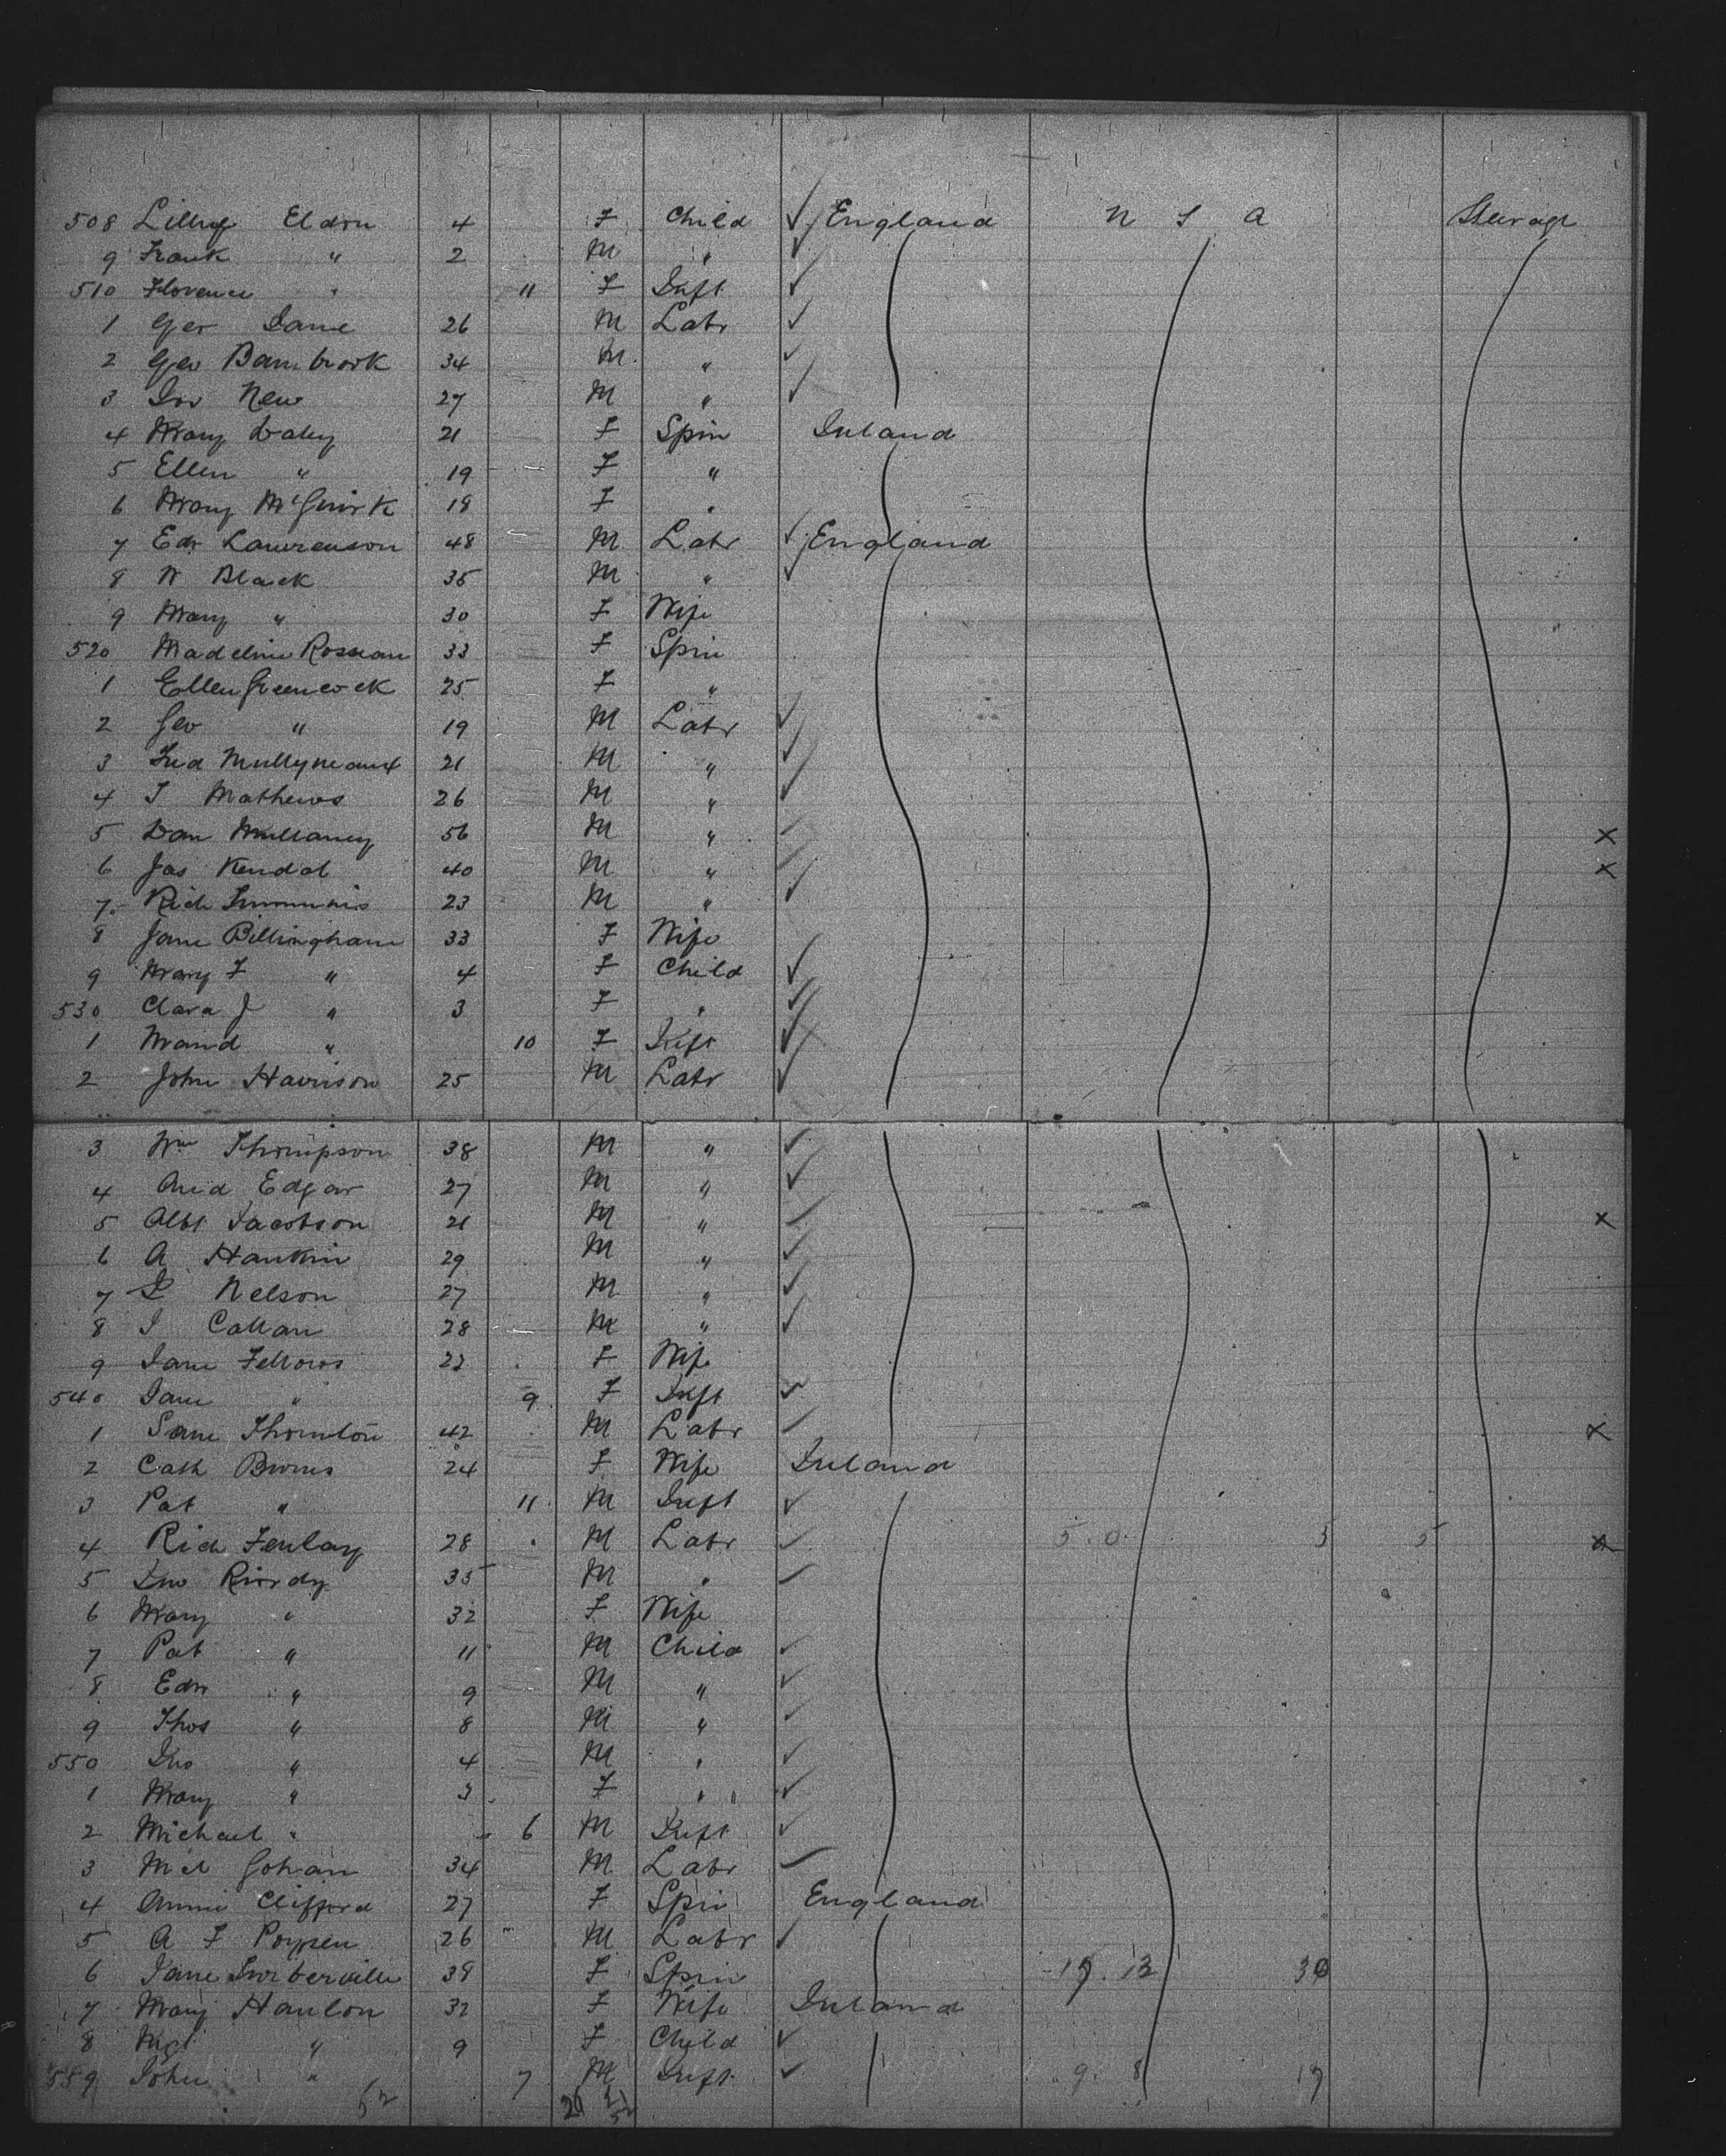 508 Lilly Eldon 4 F Child ✓ England U S A Steerage
9 Frank " 2 M " ✓
510 Florence " 11 F Inft ✓
1 Geo 26 M Labr ✓
2 Geo Bambrook 34 M " ✓
3 New 27 M " ✓
4 Mary Daley 21 F Spin Ireland
5 Ellen " 19 F "
6 Mary McGuirk 18 F "
7 Edw Lawrenson 48 M Labr ✓ England
8 W Black 35 M " ✓
9 Mary " 30 F Wife
520 Madeline 33 F Spin
1 Ellen Greencock 25 F "
2 Geo " 19 M Labr ✓
3 Fred Mullyneaux 21 M " ✓
4 J Mathews 26 M " ✓
5 Dan Mullaney 56 M " ✓ X
6 Jas Kendal 40 M " ✓ X
7 Rich 23 M " ✓
8 Jane Billingham 33 F Wife
9 Mary F " 4 F Child ✓
530 Clara J " 3 F " ✓
1 Maud " 10 F Inft ✓
2 John Harrison 25 M Labr ✓
3 Wm Thompson 38 M " ✓
4 Edgar 27 M " ✓
5 Albt Jacobson 21 M " ✓ X
6 A Hankin 29 M " ✓
7 Nelson 27 M " ✓
8 J Callan 28 M " ✓
9 Jane Fellows 22 F Wife
540 Jane " 9 F Inft ✓
1 Sam Thornton 42 M Labr ✓ X
2 Cath Burns 24 F Wife Ireland
3 Pat " 11 M Inft ✓
4 Rich Fenlay 28 M Labr ✓ 5.0 5 5 X
5 Jno Riordy 35 M " ✓
6 Mary " 32 F Wife
7 Pat " 11 M Child ✓
8 Edw " 9 M " ✓
9 Thos " 8 M " ✓
550 Jno " 4 M " ✓
1 Mary " 3 F " ✓
2 Michael " 6 M Inft ✓
3 Mcl Gohan 34 M Labr ✓
4 Annie Clifford 27 F Spin England
5 A F 26 M Labr ✓
6 Jane 38 F Spin 30
7 Mary Hanlon 32 F Wife Ireland
8 Mgt " 9 F Child ✓
559 John " 7 M Inft ✓ 9. 8
52